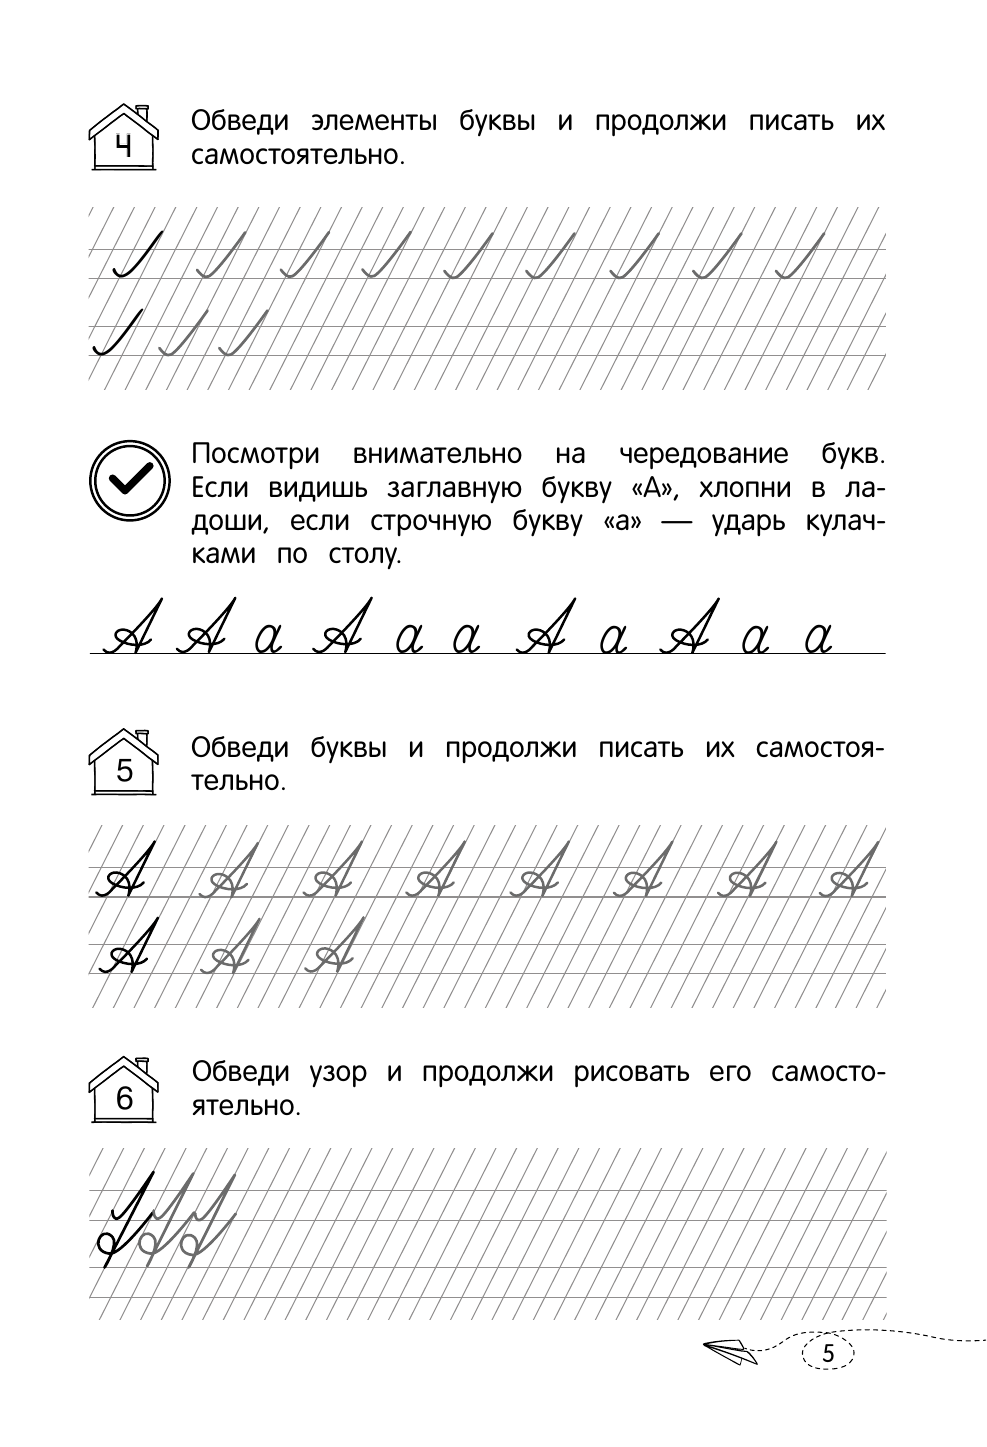 4
Обведи элементы буквы и продолжи писать их
самостоятельно.
Посмотри внимательно на чередование букв.
Если видишь заглавную букву «А», хлопни в ла-
доши, если строчную букву «а» — ударь кулач-
ками по столу.
А А а А а а А а А а а
5
Обведи буквы и продолжи писать их самостоя-
тельно.
А А А А А А А А
А А А
6
Обведи узор и продолжи рисовать его самосто-
ятельно.
5